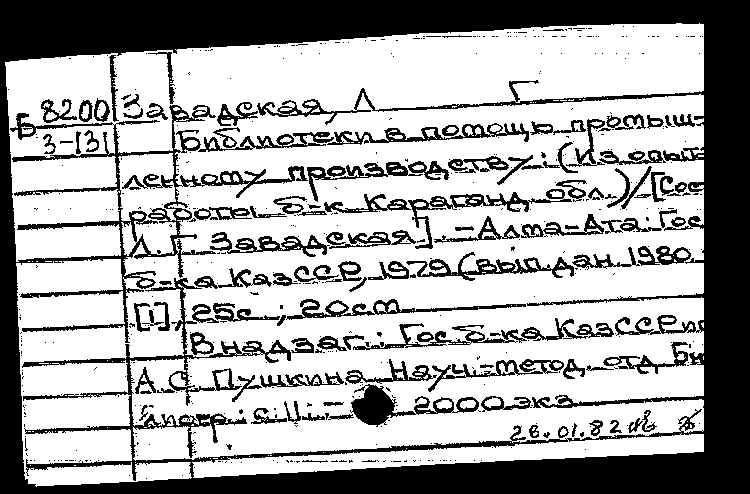 Б 8200
3-131
Завадская, Л Г
Библиотеки в помощь промыш-
ленному производству: (Из опыта
работы б-к Караганд. обл.)/[Сос
Л. Г. Завадская]. - Алма-Ата: Гос
б-ка КазССР, 1979 (вып. дан. 1980
[1], 25с ; 20 см
В надзаг.: Гос б-ка КазССР
А. С. Пушкина. Науч.-метод. отд. Би
лиогр.: с. 2000 экз
26.01.82